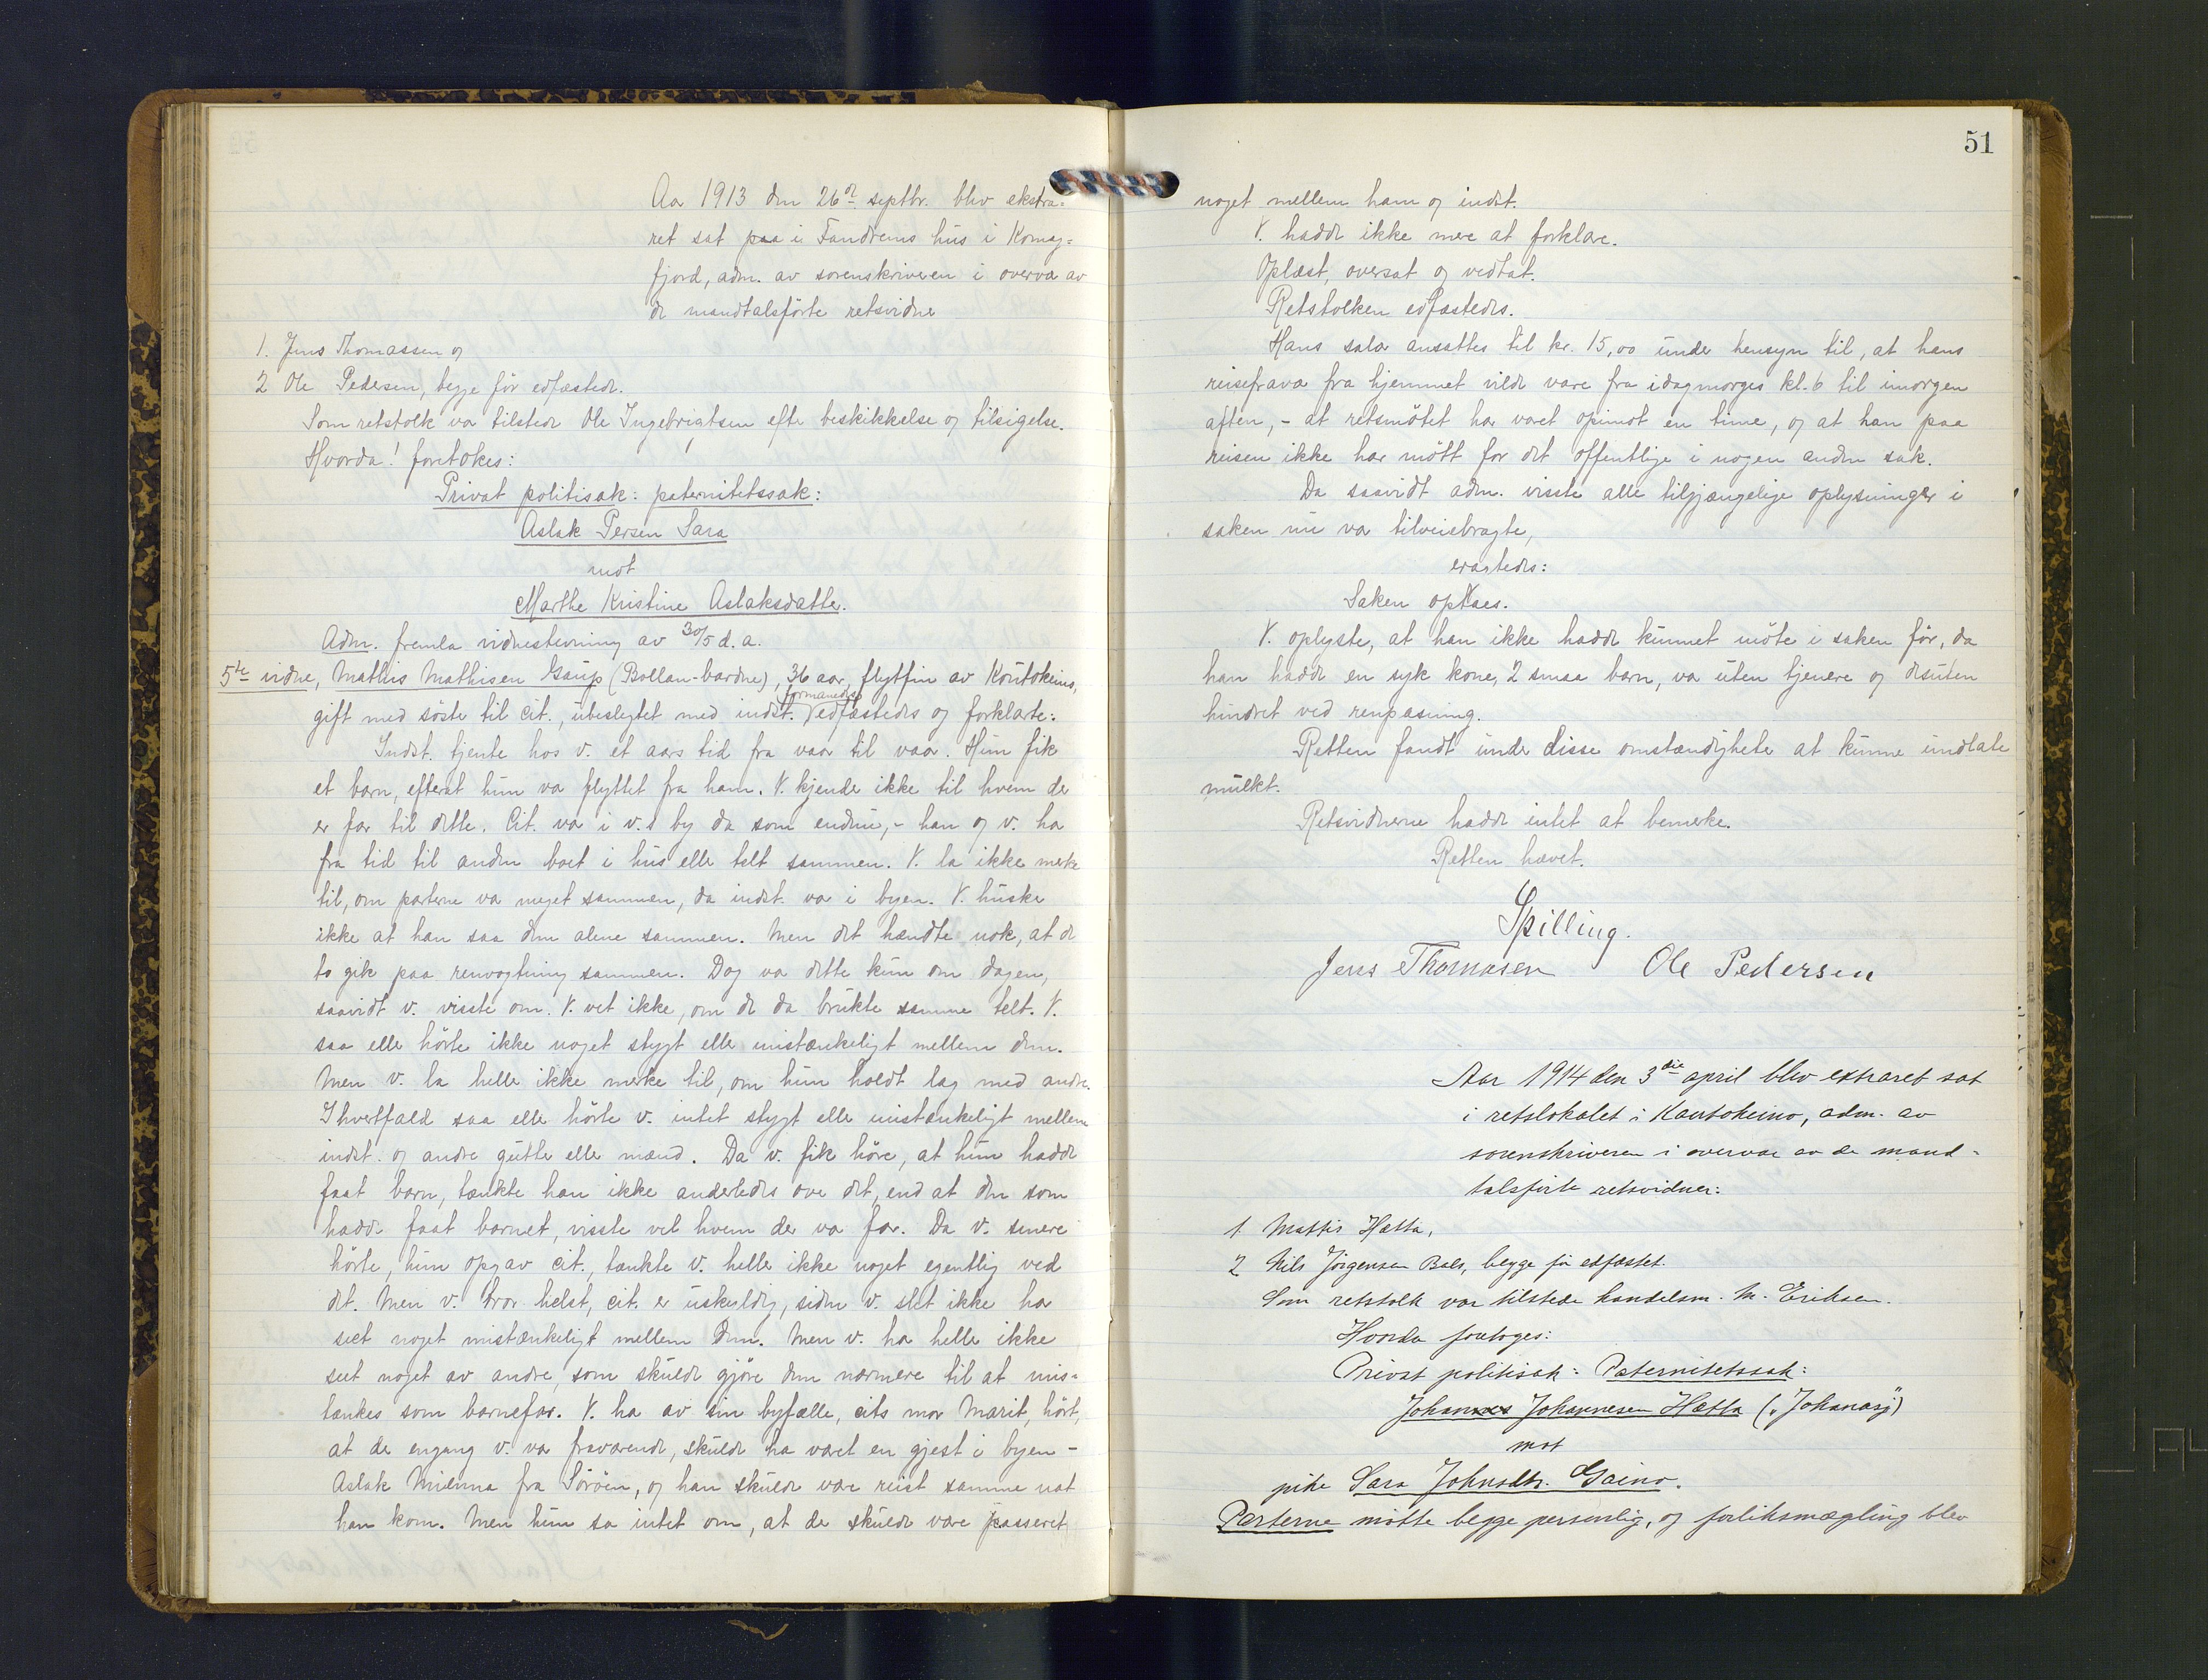 Aa 1913 den 26de septbr. blev ekstra=
ret sat paa i Fandrems hus i Komag=
fjord, adm. av sorenskriveren i overvær av
de mandtalsförte retsvidner
1. Jens Thomassen og
2 Ole Pedersen, begge för edfæstede.
Som retstolk var tilstede Ole Ingebrigtsen efter beskikkelse og tilsigelse.
Hvorda! foretokes:
Privat politisak: paternitetssak:
Aslak Persen Sara
mot
Marthe Kristine Aslaksdatter.
Adm. fremla vidnestevning av 30/5 d. a.
5te vidne, Mathis Mathisen Gaup (Bollan-bardne), 36 aar, flytfin av Koutokeino,
gift med söster til cit., ubeslegtet med indst. formanedes edfæstedes og forklarte:
Indst. tjente hos v. et aars tid fra vaar til vaar. Hun fik
et barn, efterat hun var flyttet fra ham. V. kjender ikke til hvem der
er far til dette. Cit. var i v.s by da som endnu, - han og v. har
fra tid til anden boet i hus eller telt sammen. V. la ikke merke
til, om parterne var meget sammen, da indst. var i byen. V. husker
ikke at han saa dem alene sammen. Men det hændte nok, at de
to gik paa renvogtning sammen. Dog var dette kun om dagen,
saavidt v. visste om. V. vet ikke, om de da brukte samme telt. V.
saa eller hörte ikke noget stygt eller mistænkeligt mellem dem.
Men v. la heller ikke merke til, om hun holdt lag med andre.
I hvertfald saa eller hörte v. intet stygt eller mistænkeligt mellem
indst. og andre gutter eller mænd. Da v. fik höre, at hun hadde
faat barn, tænkte han ikke anderledes over det, end at den som
hadde faat barnet, visste vel hvem der var far. Da v. senere
hörte, hun opgav cit., tænkte v. heller ikke noget egentlig ved
det. Men v. tror helst, cit. er uskyldig, siden v. slet ikke har
seet noget mistænkeligt mellem dem. Men v. har heller ikke
seet noget av andre, som skulde gjöre dem nærmere til at mis=
tænkes som barnefar. V. har av sin byfælle, cits mor Marit, hört,
at der engang v. var fraværende, skulde ha været en gjest i byen -
Aslak Mienna fra Söröen, og han skulde være reist samme nat
han kom. Men hun sa intet om, at der skulde være passeret
51
noget mellem ham og indst.
V. hadde ikke mere at forklare.
Oplæst, oversat og vedtat.
Retstolken edfæstedes.
Hans salær ansattes til kr. 15,00 under hensyn til, at hans
reisefravær fra hjemmet vilde vare fra idagmorges kl. 6 til imorgen
aften, - at retsmötet har varet opimot en time, og at han paa
reisen ikke har mött for det offentlige i nogen anden sak.
Da saavidt adm. visste alle tilgjængelige oplysninger i
saken nu var tilveiebragte,
eragtedes:
Saken optaes.
V. oplyste, at han ikke hadde kunnet möte i saken för, da
han hadde en syk kone, 2 smaa barn, var uten tjenere og desuten
hindret ved renpasning.
Retten fandt under disse omstændigheter at kunne undlate
mulkt.
Retsvidnerne hadde intet at bemerke.
Retten hævet.
Spilling.
Jens Thomasen Ole Pedersen
Aar 1914 den 3die april blev extraret sat
i retslokalet i Kautokeino, adm. av
sorenskriveren i overvær av de mand-
talsförte retsvidner:
1 Mattis Hætta,
2 Nils Jörgensen Bals, begge för edfæstet.
Som retstolk var tilstede handelsm. M. Eriksen.
Hvorda foretoges:
Privat politisak: Paternitetssak:
Johannes Johannesen Hætta („Johanasj")
mot
pike Sara Johnsdtr. Gaino.
Parterne mötte begge personlig, og forliksmægling blev